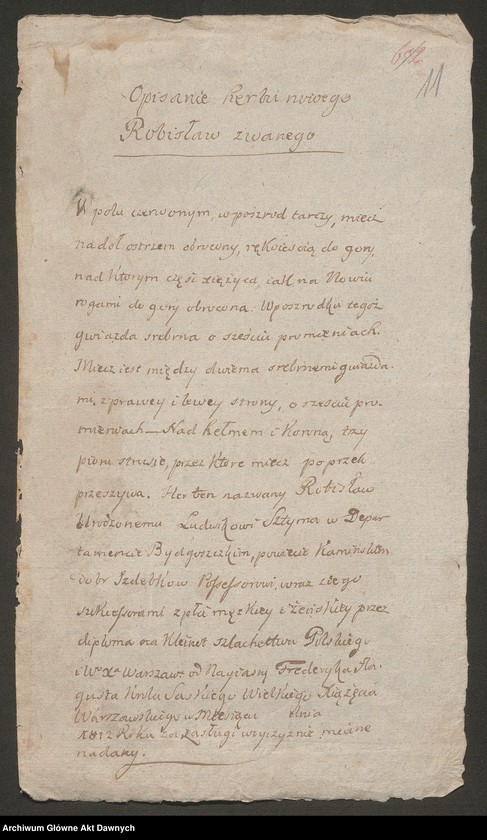 672
11
Opisanie herbu nowego
Robisław zwanego
W polu czerwonym, w pośzrod tarczy, miecz
na doł ostrzem obrocony, rękoieścią do gory,
nad ktorym część xiężyca, iak na Nowiu
rogami do gory obrocona. W poszrodku tegoż
gwiazda srebrna o sześciu promieniach.
Miecz iest między dwiema srebrnemi gwiazda-
mi, z prawey i lewey strony, o sześciu pro-
mieniach — Nad hełmem i Koroną, trzy
piora strusie, przez ktore miecz poprzek
przeszywa. Herb ten nazwany Robisław
Urodzonemu Ludwikowi Sztyma w Depar-
tamencie Bydgoszczkim, powiecie Kamińskim
dobr Izdebkow Possessorowi, wraz z iego
sukcessorami z płci męzkiey i żeńskiey przez
diploma na Kleinot szlachectwa Polskiego
i Wo Xa Warszaws: od Nayiaśn: Fryderyka Au-
gusta Krola Saskiego Wielkiego Xiążęcia
Warszawskiego w Miesiącu dnia
1812 Roku za zasługi w oyczyznie miane
nadany.
Archiwum Główne Akt Dawnych